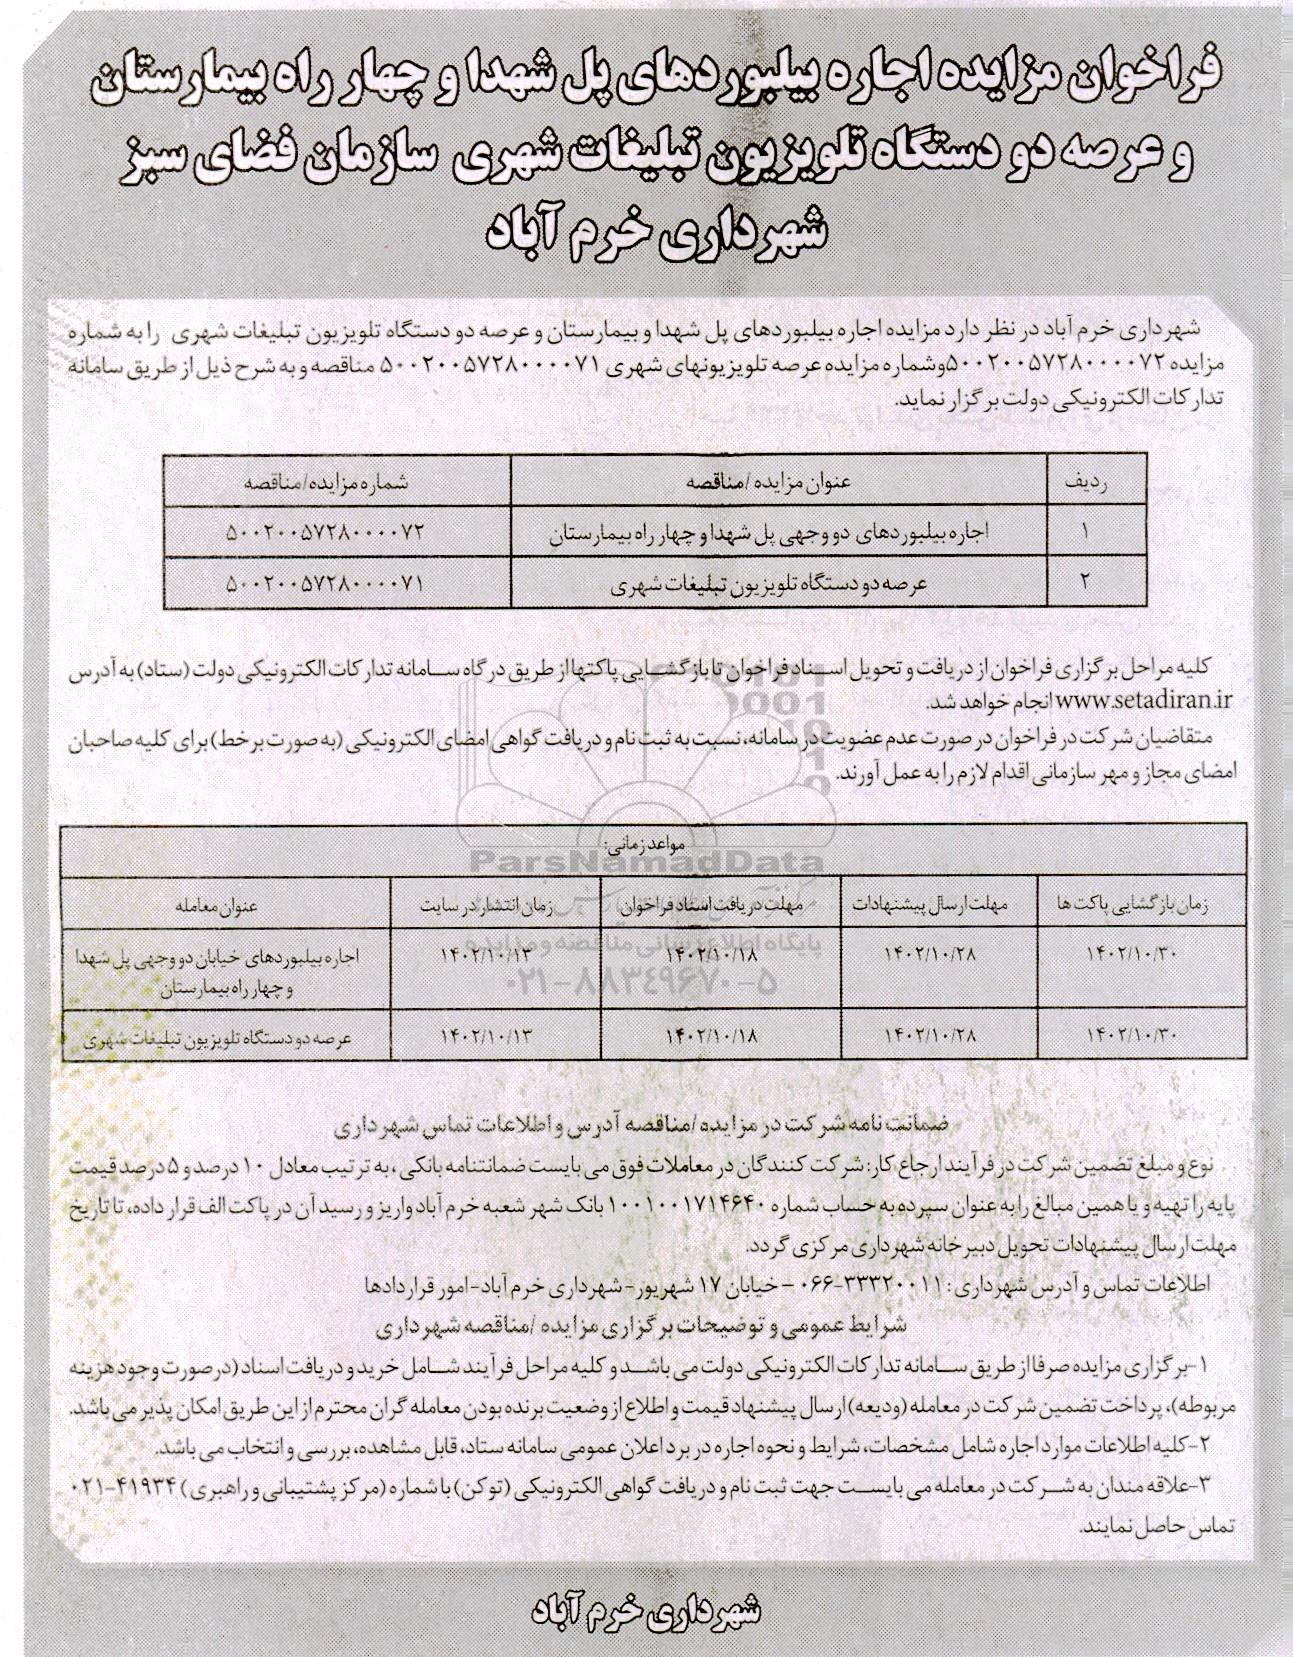 فراخوان مزایده اجاره بیلبوردهای پل شهدا و چهار راه بیمارستان
و عرصه دو دستگاه تلویزیون تبلیغات شهری سازمان فضای سبز
شهرداری خرم آباد
شهرداری خرم آباد در نظر دارد مزایده اجاره بیلبوردهای پل شهدا و بیمارستان و عرصه دو دستگاه تلویزیون تبلیغات شهری را به شماره
مزایده ۵۰۰۲۰۰۵۷۲۸۰۰۰۰۷۲ وشماره مزایده عرصه تلویزیونهای شهری ۵۰۰۲۰۰۵۷۲۸۰۰۰۰۷۱ مناقصه و به شرح ذیل از طریق سامانه
تدارکات الکترونیکی دولت برگزار نماید.
ردیف عنوان مزایده /مناقصه شماره مزایده/مناقصه
۱ اجاره بیلبوردهای دو وجهی پل شهدا و چهار راه بیمارستان ۵۰۰۲۰۰۵۷۲۸۰۰۰۰۷۲
۲ عرصه دو دستگاه تلویزیون تبلیغات شهری ۵۰۰۲۰۰۵۷۲۸۰۰۰۰۷۱
کلیه مراحل برگزاری فراخوان از دریافت و تحویل اسناد فراخوان تا بازگشایی پاکتها از طریق درگاه سامانه تدارکات الکترونیکی دولت (ستاد) به آدرس
www.setadiran.ir انجام خواهد شد.
متقاضیان شرکت در فراخوان در صورت عدم عضویت در سامانه، نسبت به ثبت نام و دریافت گواهی امضای الکترونیکی (به صورت بر خط) برای کلیه صاحبان
امضای مجاز و مهر سازمانی اقدام لازم را به عمل آورند.
مواعد زمانی:
زمان بازگشایی پاکت ها مهلت ارسال پیشنهادات مهلت دریافت اسناد فراخوان زمان انتشار در سایت عنوان معامله
۱۴۰۲/۱۰/۳۰ ۱۴۰۲/۱۰/۲۸ ۱۴۰۲/۱۰/۱۸ ۱۴۰۲/۱۰/۱۳ اجاره بیلبوردهای خیابان دو وجهی پل شهدا
و چهار راه بیمارستان
۱۴۰۲/۱۰/۳۰ ۱۴۰۲/۱۰/۲۸ ۱۴۰۲/۱۰/۱۸ ۱۴۰۲/۱۰/۱۳ عرصه دو دستگاه تلویزیون تبلیغات شهری
ParsNamadData
پایگاه اطلاع رسانی مناقصه و مزایده
۰۲۱-۸۸۳۴۹۶۷۰-۵
ضمانت نامه شرکت در مزایده/مناقصه آدرس و اطلاعات تماس شهرداری
نوع و مبلغ تضمین شرکت در فرآیند ارجاع کار: شرکت کنندگان در معاملات فوق می بایست ضمانتنامه بانکی ، به ترتیب معادل ۱۰ درصد و ۵ درصد قیمت
پایه را تهیه و یا همین مبالغ را به عنوان سپرده به حساب شماره ۱۰۰۱۰۰۱۷۱۴۶۴۰ بانک شهر شعبه خرم آباد واریز و رسید آن در پاکت الف قرار داده، تا تاریخ
مهلت ارسال پیشنهادات تحویل دبیرخانه شهرداری مرکزی گردد.
اطلاعات تماس و آدرس شهرداری : ۳۳۳۲۰۰۱۱-۰۶۶ - خیابان ۱۷ شهریور- شهرداری خرم آباد- امور قراردادها
شرایط عمومی و توضیحات برگزاری مزایده /مناقصه شهرداری
۱-برگزاری مزایده صرفا از طریق سامانه تدارکات الکترونیکی دولت می باشد و کلیه مراحل فرآیند شامل خرید و دریافت اسناد (در صورت وجود هزینه
مربوطه)، پرداخت تضمین شرکت در معامله (ودیعه) ارسال پیشنهاد قیمت و اطلاع از وضعیت برنده بودن معامله گران محترم از این طریق امکان پذیر می باشد.
۲-کلیه اطلاعات موارد اجاره شامل مشخصات، شرایط و نحوه اجاره در برد اعلان عمومی سامانه ستاد، قابل مشاهده، بررسی و انتخاب می باشد.
۳-علاقه مندان به شرکت در معامله می بایست جهت ثبت نام و دریافت گواهی الکترونیکی (توکن) با شماره (مرکز پشتیبانی و راهبری ) ۴۱۹۳۴-۰۲۱
تماس حاصل نمایند.
شهرداری خرم آباد